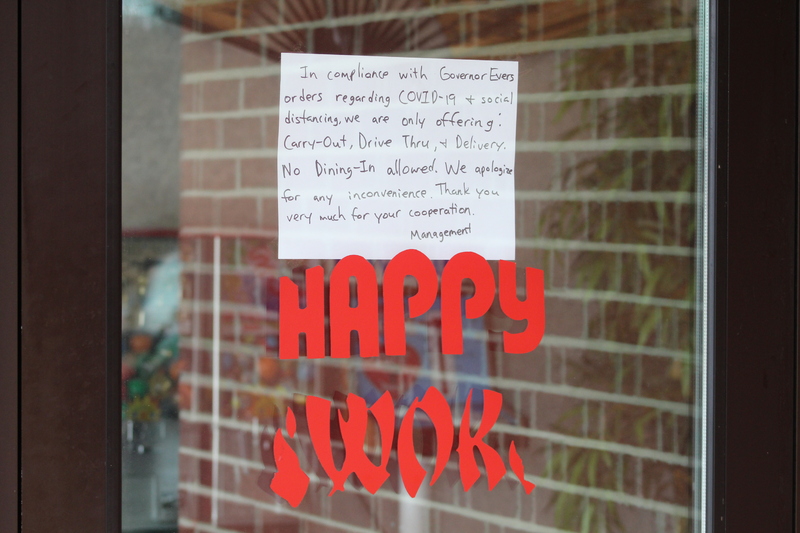 In compliance with Governor Evers
orders regarding COVID-19 + social
distancing, we are only offering:
Carry-Out, Drive Thru, + Delivery.
No Dining-In allowed. We apologize
for any inconvenience. Thank you
very much for your cooperation.
Management
HAPPY
WOK